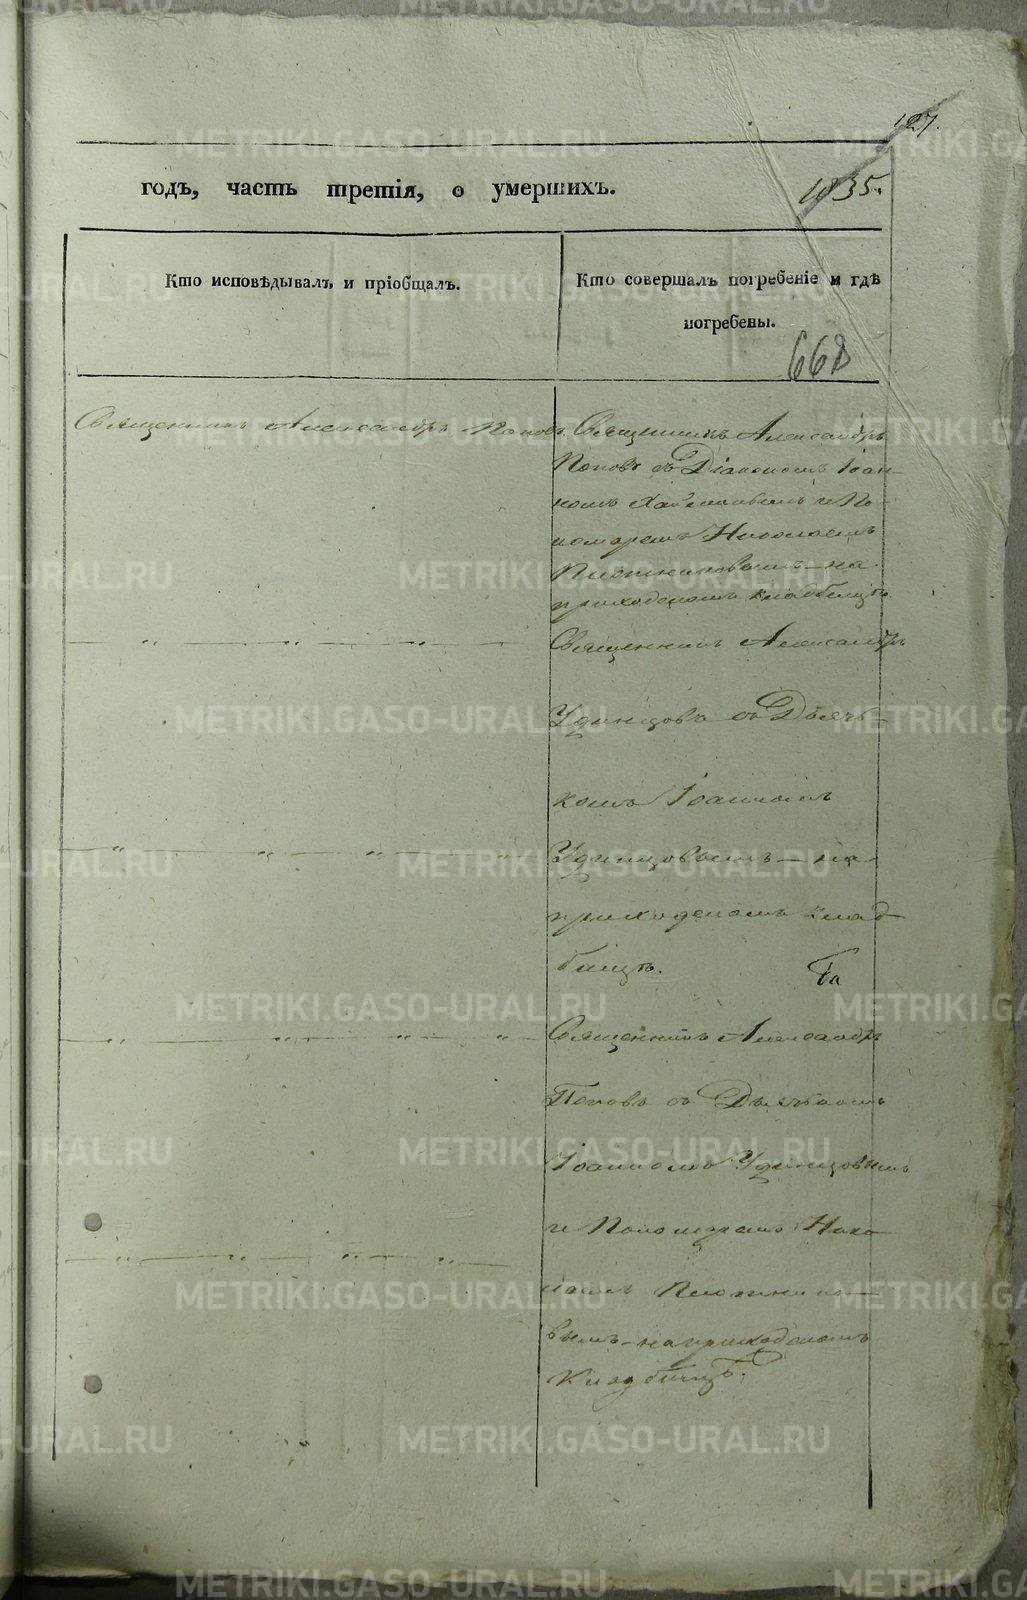 127.
годъ, часть третія, о умершихъ.
1835.
Кто исповѣдывалъ и пріобщалъ.
Кто совершалъ погребеніе и гдѣ
погребены.
668
Священникъ Александръ Поповъ.
Священникъ Александръ
Поповъ съ Діакономъ Іоан-
номъ и По-
номаремъ Николаемъ
Плотниковымъ – на
приходскомъ кладбищѣ.
Священникъ Александръ
Удинцовъ съ Дьяч-
комъ Іоанномъ
Удинцовымъ – на
приходскомъ клад-
бищѣ.
Священникъ Александръ
Поповъ съ Дьячкомъ
Іоанномъ Удинцовымъ
и Пономаремъ Нико-
лаемъ Плотнико-
вымъ – на приходскомъ
Кладбищѣ.
METRIKI.GASO-URAL.RU